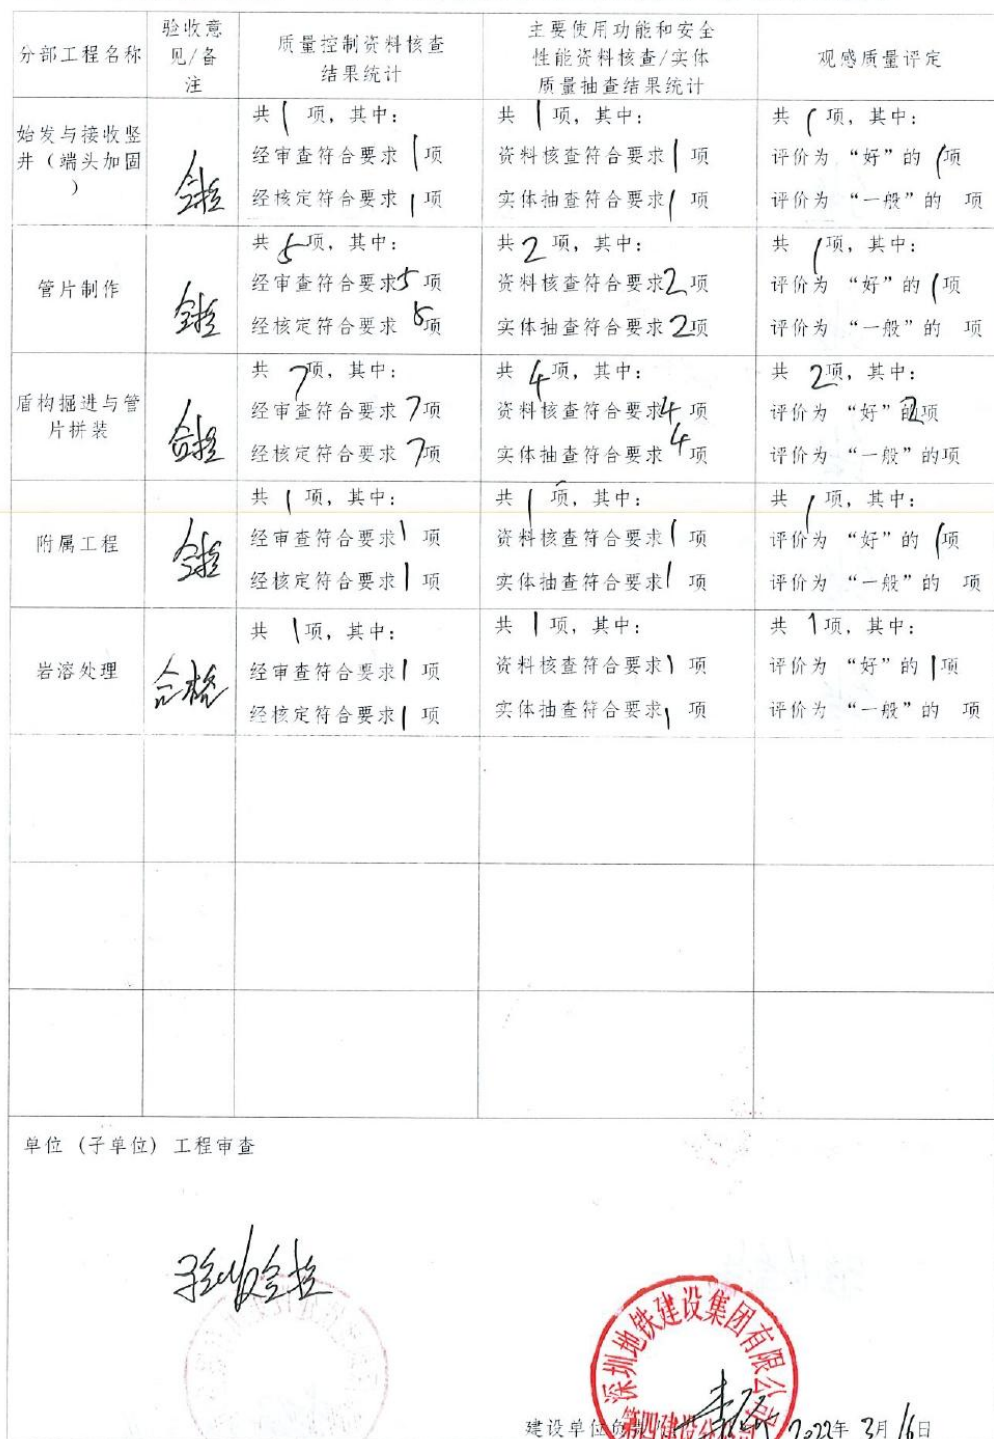 分部工程名称
验收意
见/备
注
质量控制资料核查
结果统计
主要使用功能和安全
性能资料核查/实体
质量抽查结果统计
观感质量评定
始发与接收竖
井（端头加固
）
合格
共 1 项，其中：
经审查符合要求 1 项
经核定符合要求 1 项
共 1 项，其中：
资料核查符合要求 1 项
实体抽查符合要求 1 项
共 1 项，其中：
评价为 “好”的 1 项
评价为 “一般”的 项
管片制作
合格
共 5 项，其中：
经审查符合要求 5 项
经核定符合要求 5 项
共 2 项，其中：
资料核查符合要求 2 项
实体抽查符合要求 2 项
共 1 项，其中：
评价为 “好”的 1 项
评价为 “一般”的 项
盾构掘进与管
片拼装
合格
共 7 项，其中：
经审查符合要求 7 项
经核定符合要求 7 项
共 4 项，其中：
资料核查符合要求 4 项
实体抽查符合要求 4 项
共 2 项，其中：
评价为 “好”的 2 项
评价为 “一般”的项
附属工程
合格
共 1 项，其中：
经审查符合要求 1 项
经核定符合要求 1 项
共 1 项，其中：
资料核查符合要求 1 项
实体抽查符合要求 1 项
共 1 项，其中：
评价为 “好”的 1 项
评价为 “一般”的 项
岩溶处理
合格
共 1 项，其中：
经审查符合要求 1 项
经核定符合要求 1 项
共 1 项，其中：
资料核查符合要求 1 项
实体抽查符合要求 1 项
共 1 项，其中：
评价为 “好”的 1 项
评价为 “一般”的 项
单位（子单位）工程审查
验收合格
深圳地铁建设集团有限公司
第四建设分公司
建设单位负责人
2022年 3月 16日